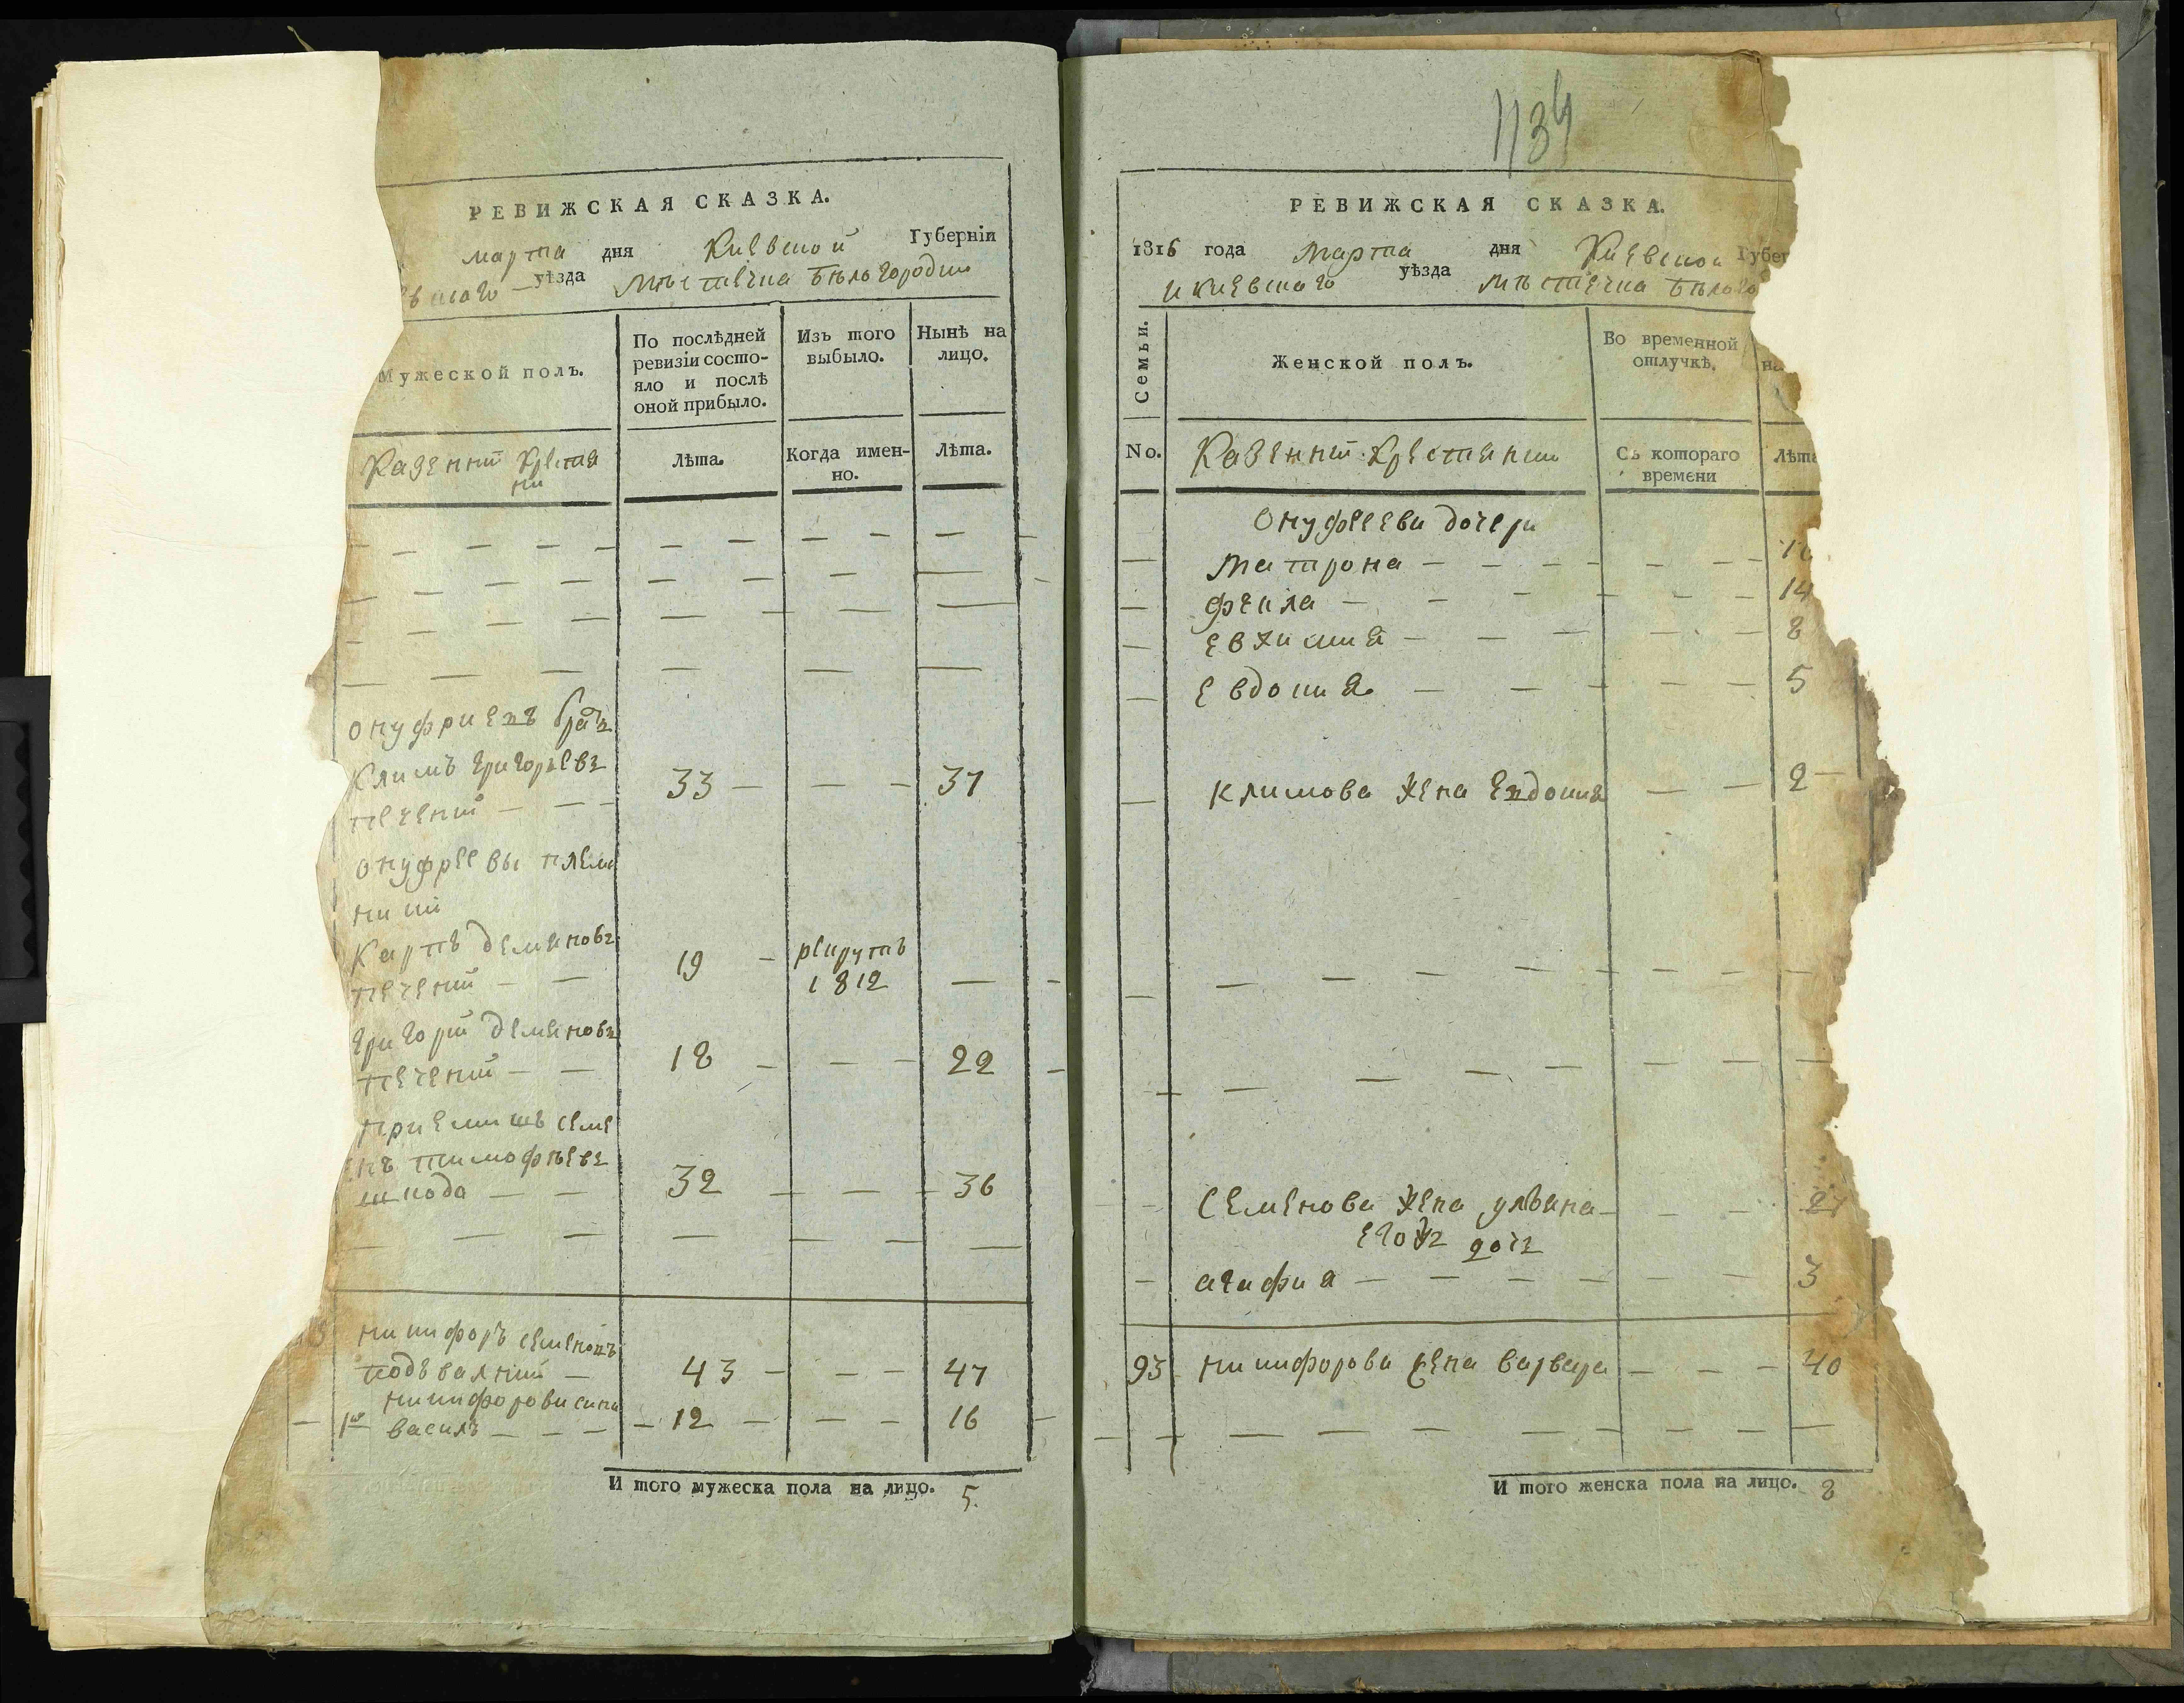 РЕВИЖСКАЯ СКАЗКА.
марта дня Киевской Губерніи
уѣзда Мѣстечка Бѣлогородки
Мужеской полъ.
По послѣдней ревизіи состояло и послѣ оной прибыло.
Изъ того выбыло.
Нынѣ на лицо.
Казенніи крестяни
Лѣта.
Когда именно.
Лѣта.
Онуфриевъ братъ
Климъ Григорьевъ 33 37
печеній
Онуфреевы племя
ники
Карпъ Демяновъ 19 рекрутъ
печеній 1812
Григорій Демяновъ 18 22
печеній
приемишъ Семе
нъ Тимофѣевъ 32 36
шкода
Никифоръ Семеновъ
подвалній 43 47
Никифорови сини
1й василь 12 16
И того мужеска пола на лицо. 5.
1134
РЕВИЖСКАЯ СКАЗКА.
1816 года Марта дня Киевской Губер
и Киевского уѣзда мѣстечка Бѣлого
Семьи.
Женской полъ.
Во временной отлучкѣ.
на
No.
Казенніи Крестянки
Съ котораго времени
Лѣта
Онуфрееви дочери
Матрона
фекла 14
Евхимия 8
Евдокия 5
климова жена Евдокия 2
Семенова жена ульяна 27
егожъ дочь
агафия 3
93 никифорова жена варвара 40
И того женска пола на лицо. 8